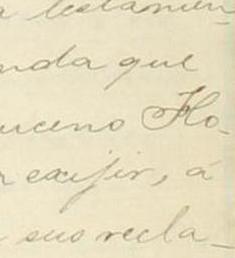 a testamen-
nda que
uceno Flo-
r exijir, á
sus recla-